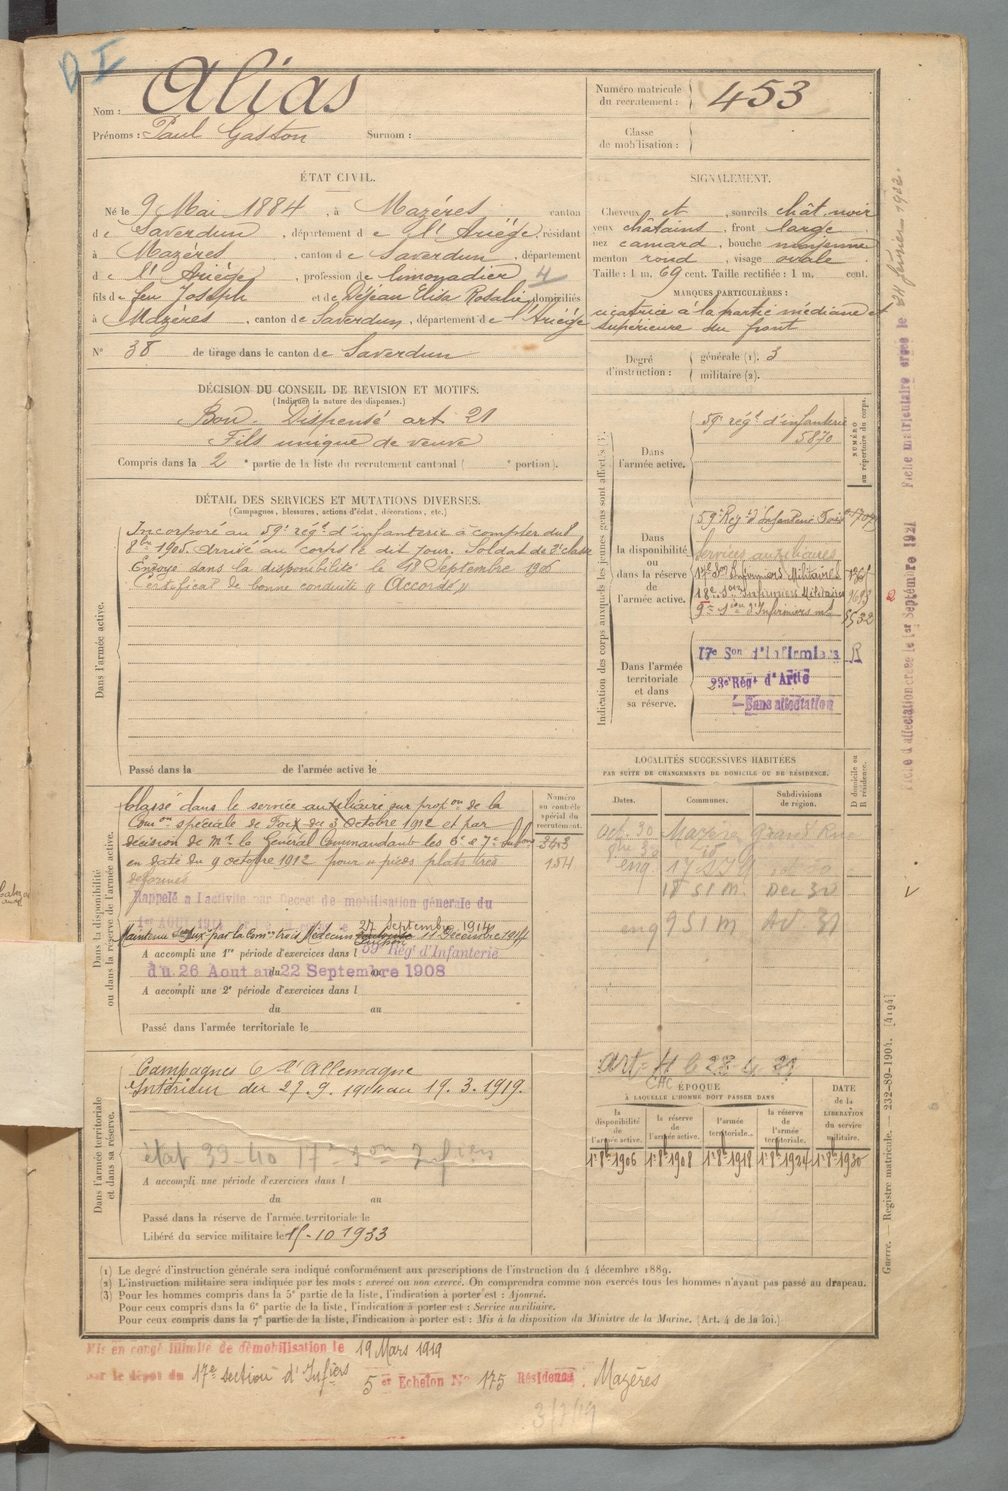 D I
Nom : Alias
Prénoms : Paul Gaston Surnom :
Numéro matricule du recrutement : 453
Classe de mobilisation :
ÉTAT CIVIL.
Né le 9 Mai 1884, à Mazères canton
de Saverdun, département de l'Ariège, résidant
à Mazères, canton de Saverdun, département
de l'Ariège, profession de limonadier 4
fils de feu Joseph et de Dejean Elisa Rosalie domiciliés
à Mazères, canton de Saverdun, département de l'Ariège
N° 38 de tirage dans le canton de Saverdun
SIGNALEMENT.
Cheveux et sourcils chât. noir
yeux châtains, front large
nez camard, bouche moyenne
menton rond, visage ovale
Taille : 1 m. 69 cent. Taille rectifiée : 1 m. cent.
MARQUES PARTICULIÈRES :
cicatrice à la partie médiane et
supérieure du front
Degré d'instruction : générale (1). 3
militaire (2).
DÉCISION DU CONSEIL DE REVISION ET MOTIFS.
(Indiquer la nature des dispenses.)
Bon. Dispensé art 21
Fils unique de veuve
Compris dans la 2e partie de la liste du recrutement cantonal ( e portion).
DÉTAIL DES SERVICES ET MUTATIONS DIVERSES.
(Campagnes, blessures, actions d'éclat, décorations, etc.)
Dans l'armée active.
Incorporé au 59e régt d'infanterie à compter du
8bre 1905. Arrivé au corps le dit jour. Soldat de 2e classe
Envoyé dans la disponibilité le 18 Septembre 1906
Certificat de bonne conduite "Accordé"
Passé dans la de l'armée active le
Indication des corps auxquels les jeunes gens sont affectés
NUMÉRO au répertoire du corps.
Dans l'armée active.
59e régt d'infanterie
5870
Dans la disponibilité ou dans la réserve de l'armée active.
59e Régt d'Infanterie Foix
Services auxiliaires
17e Son Infirmiers Militaires
18e Son Infirmiers Militaires
9e Son d'Infirmiers
Dans l'armée territoriale et dans sa réserve.
17e Son d'Infirmiers R
23e Régt d'Artie
Sans affectation
Dans la disponibilité ou dans la réserve de l'armée active.
Classé dans le service auxiliaire sur propon de la
Comon spéciale de Foix du 3 Octobre 1912 et par
décision de Mr le Général Commandant les 6e et 7e subons
en date du 9 octobre 1912 pour "pieds plats très
déformés
Rappelé à l'activité par Décret de mobilisation générale du
1er AOUT 1914
27 Septembre 1914
11 Décembre 1914
A accompli une 1re période d'exercices dans l 59e Régt d'Infanterie
du 26 Aout au 22 Septembre 1908
A accompli une 2e période d'exercices dans l
du au
Passé dans l'armée territoriale le
Numéro au contrôle spécial du recrutement.
343
154
LOCALITÉS SUCCESSIVES HABITÉES
PAR SUITE DE CHANGEMENTS DE DOMICILE OU DE RÉSIDENCE.
Dates. Communes. Subdivisions de région. D domicile ou R résidence.
Oct. 30 Mazères Grand'Rue
18 S I M. Dec 30
9 S I M
Dans l'armée territoriale et dans sa réserve.
Campagnes C l'Allemagne
Intérieur du 27.9.1914 au 19.3.1919.
état 39-40 17e Son Infiers
A accompli une période d'exercices dans l
du au
Passé dans la réserve de l'armée territoriale le
Libéré du service militaire le 15-10 1933
ÉPOQUE
À LAQUELLE L'HOMME DOIT PASSER DANS
la disponibilité de l'armée active. la réserve de l'armée active. l'armée territoriale. la réserve de l'armée territoriale. DATE de la LIBÉRATION du service militaire.
1er 8bre 1906 1er 8bre 1908 1er 8bre 1918 1er 8bre 1924 1er 8bre 1930
(1) Le degré d'instruction générale sera indiqué conformément aux prescriptions du 4 décembre 1889.
(2) L'instruction militaire sera indiquée par les mots : exercé ou non exercé. On comprendra comme non exercés tous les hommes n'ayant pas passé au drapeau.
(3) Pour les hommes compris dans la 5e partie de la liste, l'indication à porter est : Ajourné.
Pour ceux compris dans la 6e partie de la liste, l'indication à porter est : Service auxiliaire.
Pour ceux compris dans la 7e partie de la liste, l'indication à porter est : Mis à la disposition du Ministre de la Marine. (Art. 4 de la loi.)
Mis en congé illimité de démobilisation le 19 Mars 1919
par le dépôt du 17e section d'Infiers 5 er Echelon N° 175 Résidence : Mazères
Guerre. — Registre matricule. — 232-89-1904. [4194]
Fiche d'affectation créée le 1er Septembre 1921 Fiche matriculaire créée le 24 février 1922.